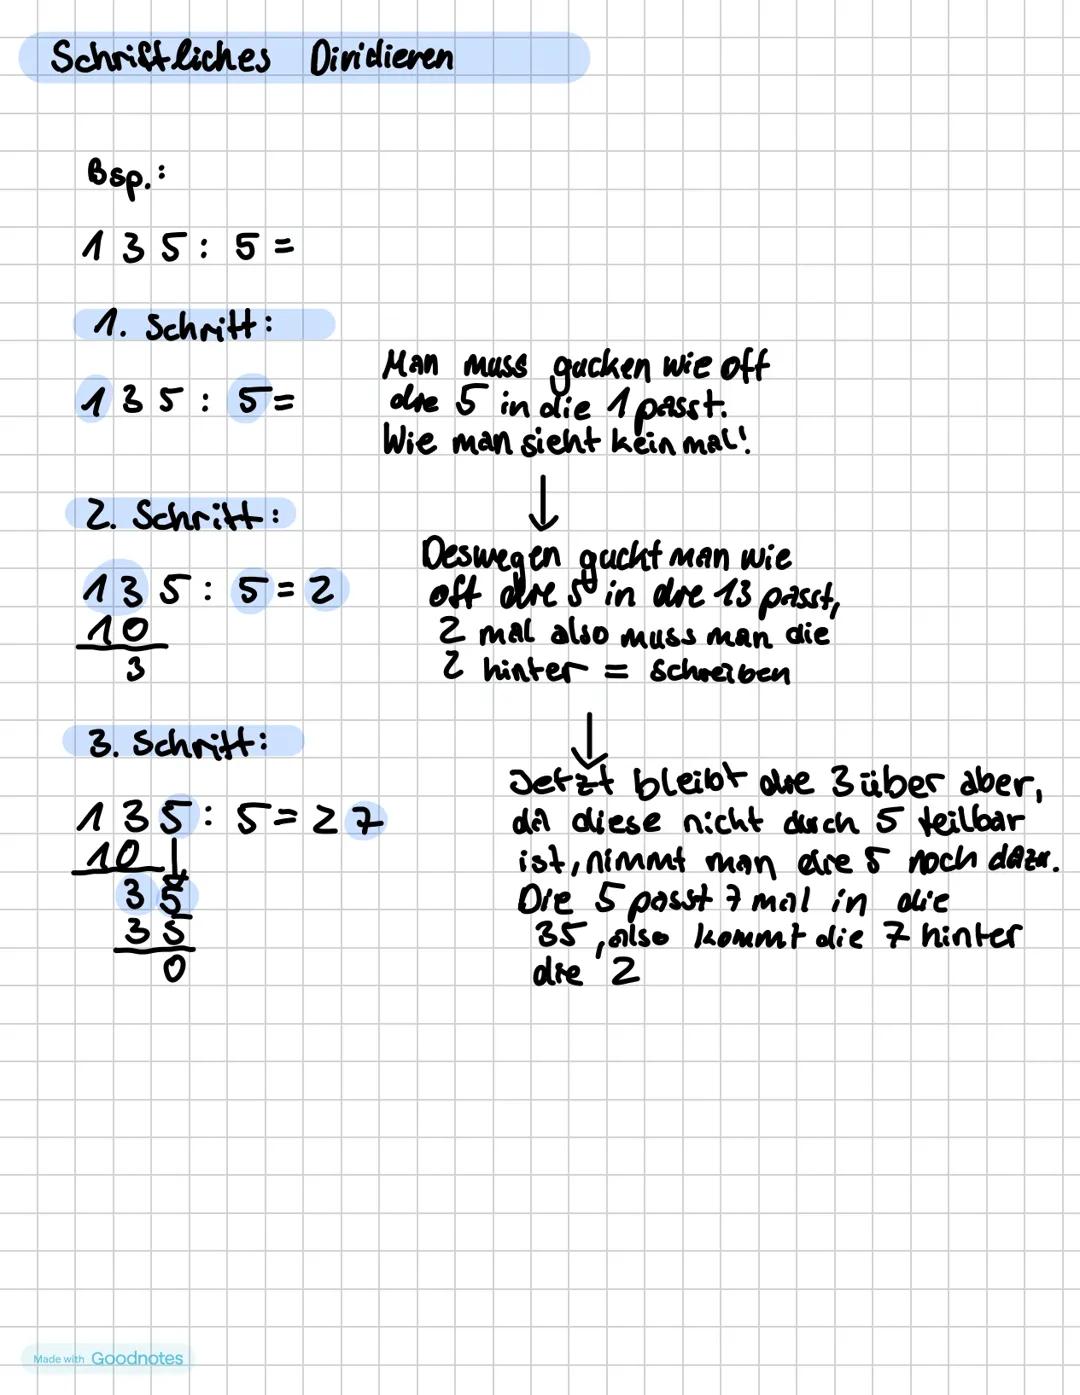 Schriftliches Dividieren
Bsp.:
135 : 5 =
1. Schritt:
135 : 5 =
Man muss gucken wie oft
die 5 in die 1 passt.
Wie man sieht kein mal!
↓
2. Schritt:
135 : 5 = 2
10
3
Deswegen guckt man wie
oft die 5 in die 13 passt,
2 mal also muss man die
2 hinter = schreiben
↓
3. Schritt:
135 : 5 = 27
10 ↓
35
35
0
Jetzt bleibt die 3 über aber,
da diese nicht durch 5 teilbar
ist, nimmt man die 5 noch dazu.
Die 5 passt 7 mal in die
35, also kommt die 7 hinter
die 2
Made with Goodnotes